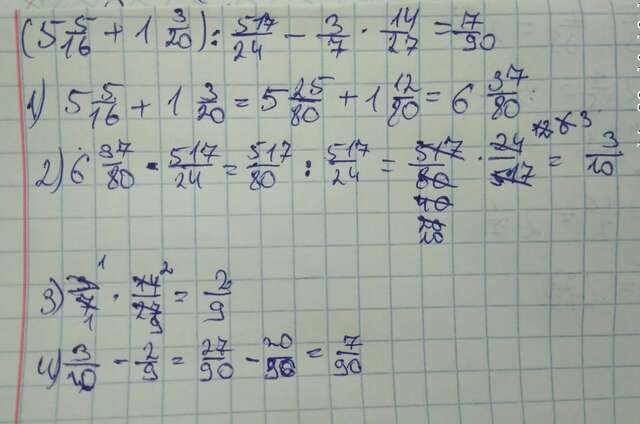 (5 5/16 + 1 3/20) : 517/24 - 3/7 · 14/27 = 7/90
1) 5 5/16 + 1 3/20 = 5 25/80 + 1 12/80 = 6 37/80
2) 6 37/80 · 517/24 = 517/80 : 517/24 = 517/80 40 20 · 24/517 12 6 3 = 3/10
3) 3/7 1/1 · 14/27 2/9 = 2/9
4) 3/10 - 2/9 = 27/90 - 20/90 = 7/90